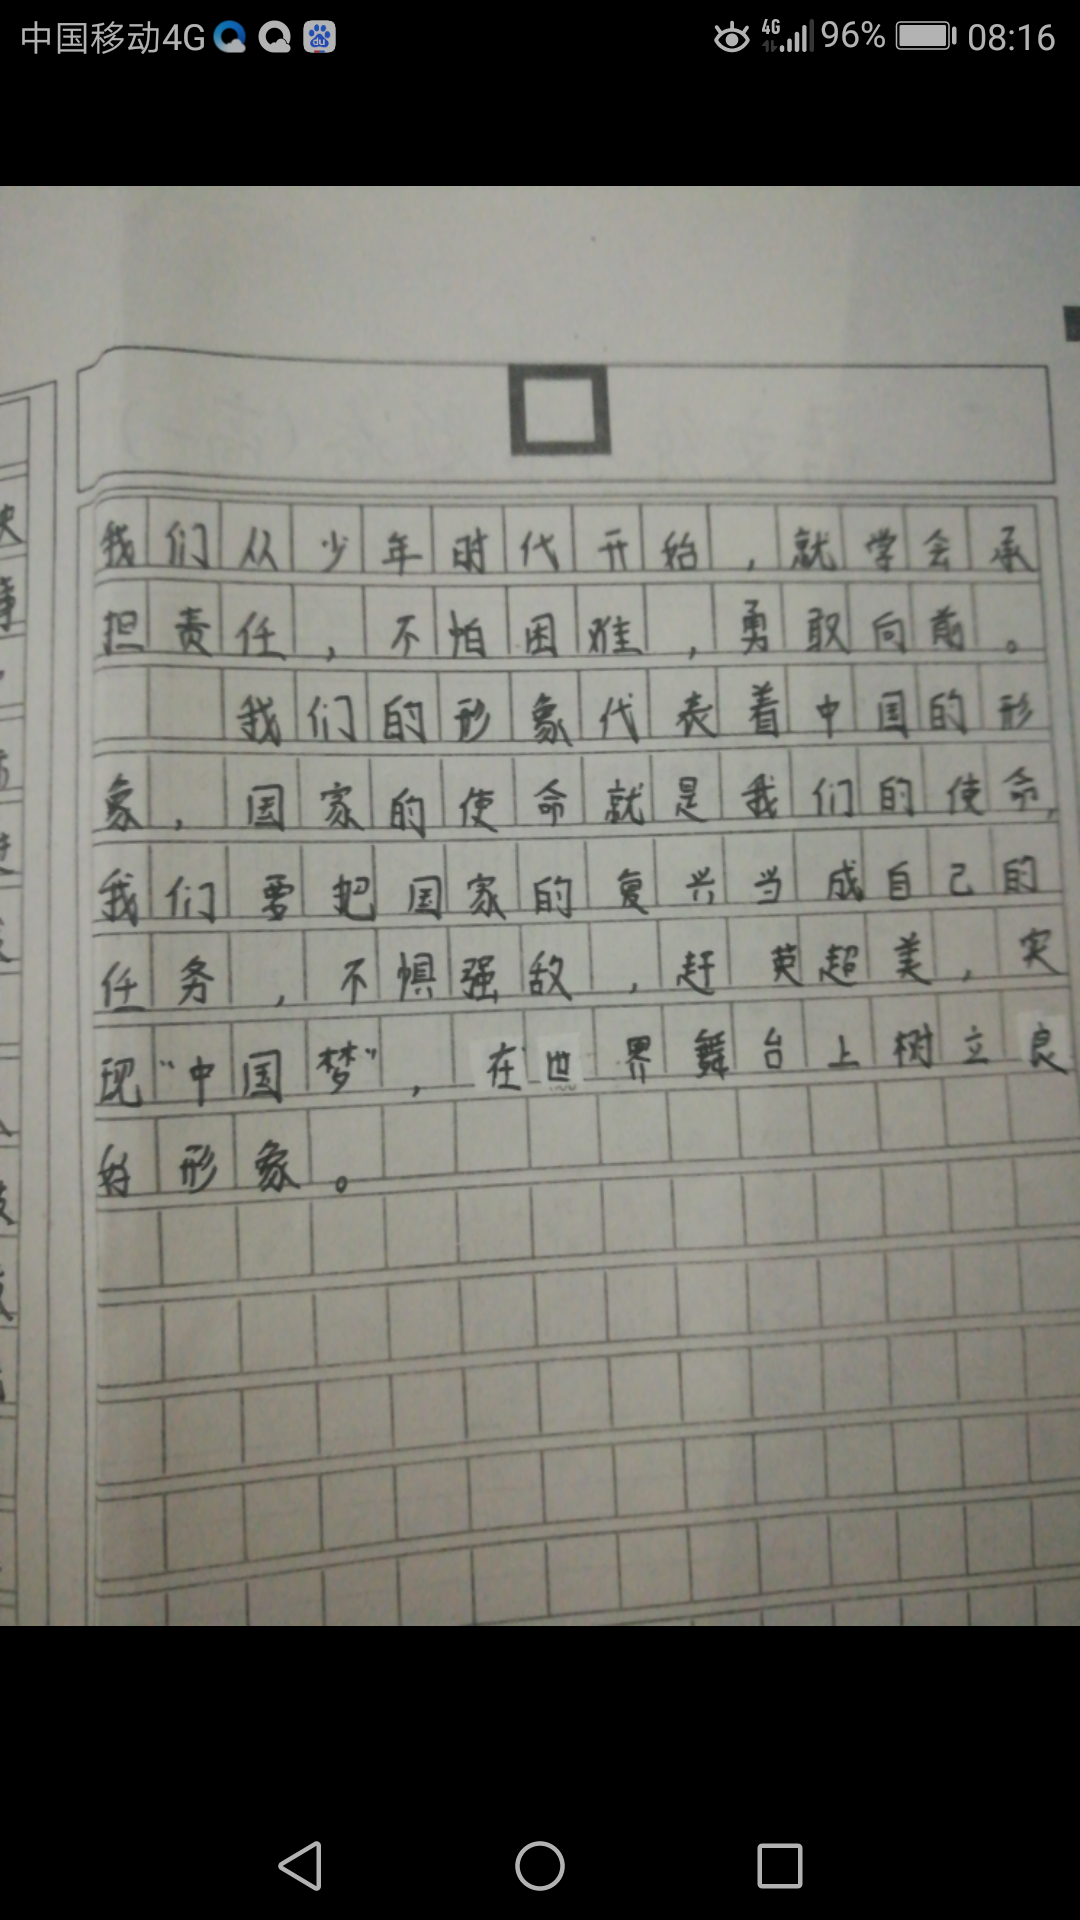 中国移动4G 4G 96% 08:16
我们从少年时代开始,就学会承
担责任,不怕困难,勇敢向前。
我们的形象代表着中国的形
象,国家的使命就是我们的使命,
我们要把国家的复兴当成自己的
任务,不惧强敌,赶英超美,实
现“中国梦”,在世界舞台上树立良
好形象。